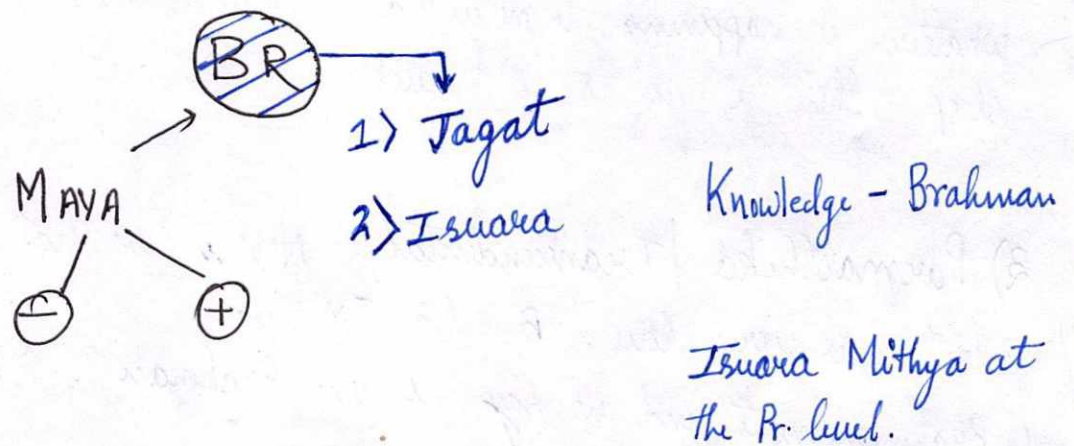 BR
1) Jagat
MAYA
2) Isuara
Knowledge - Brahman
- +
Isuara Mithya at
the Pr. level.